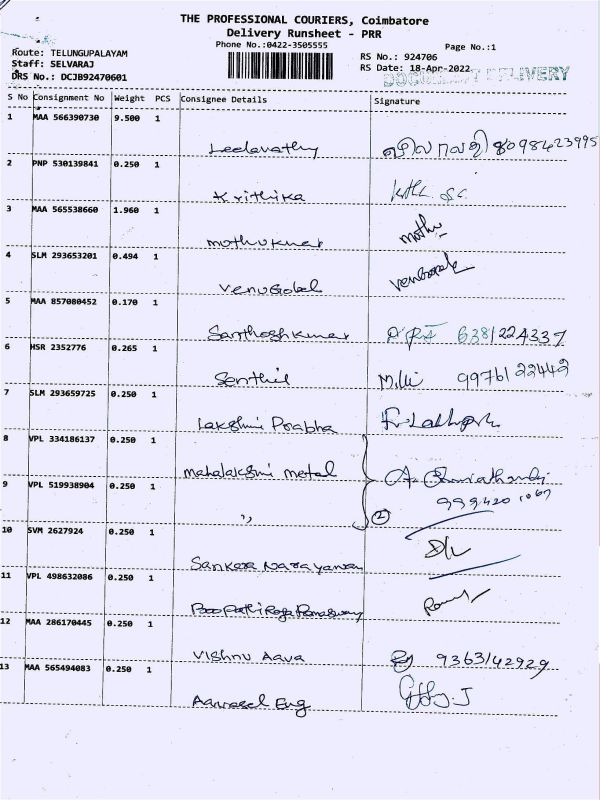 THE PROFESSIONAL COURIERS, Coimbatore
Delivery Runsheet - PRR
Phone No.:0422-3505555
Page No.:1
Route: TELUNGUPALAYAM
Staff: SELVARAJ
DRS No.: DCJB92470601
RS No.: 924706
RS Date: 18-Apr-2022
DELIVERY
S No Consignment No Weight PCS Consignee Details Signature
1 MAA 566390730 9.500 1
Leelavathy 8098423995
2 PNP 530139841 0.250 1
Krithika
3 MAA 565538660 1.960 1
Muthukumar Muthu
4 SLM 293653201 0.494 1
Venugobal
5 MAA 857080452 0.170 1
Santhoshkumar 6381224337
6 HSR 2352776 0.265 1
Senthil 9976122442
7 SLM 293659725 0.250 1
Lakshmi Prabha
8 VPL 334186137 0.250 1
Mahalakshmi metal
9 VPL 519938904 0.250 1
,, 2
10 SVM 2627924 0.250 1
Sankara Narayanan
11 VPL 498632086 0.250 1
12 MAA 286170445 0.250 1
Vishnu Aava 9363142929
13 MAA 565494083 0.250 1
Eng